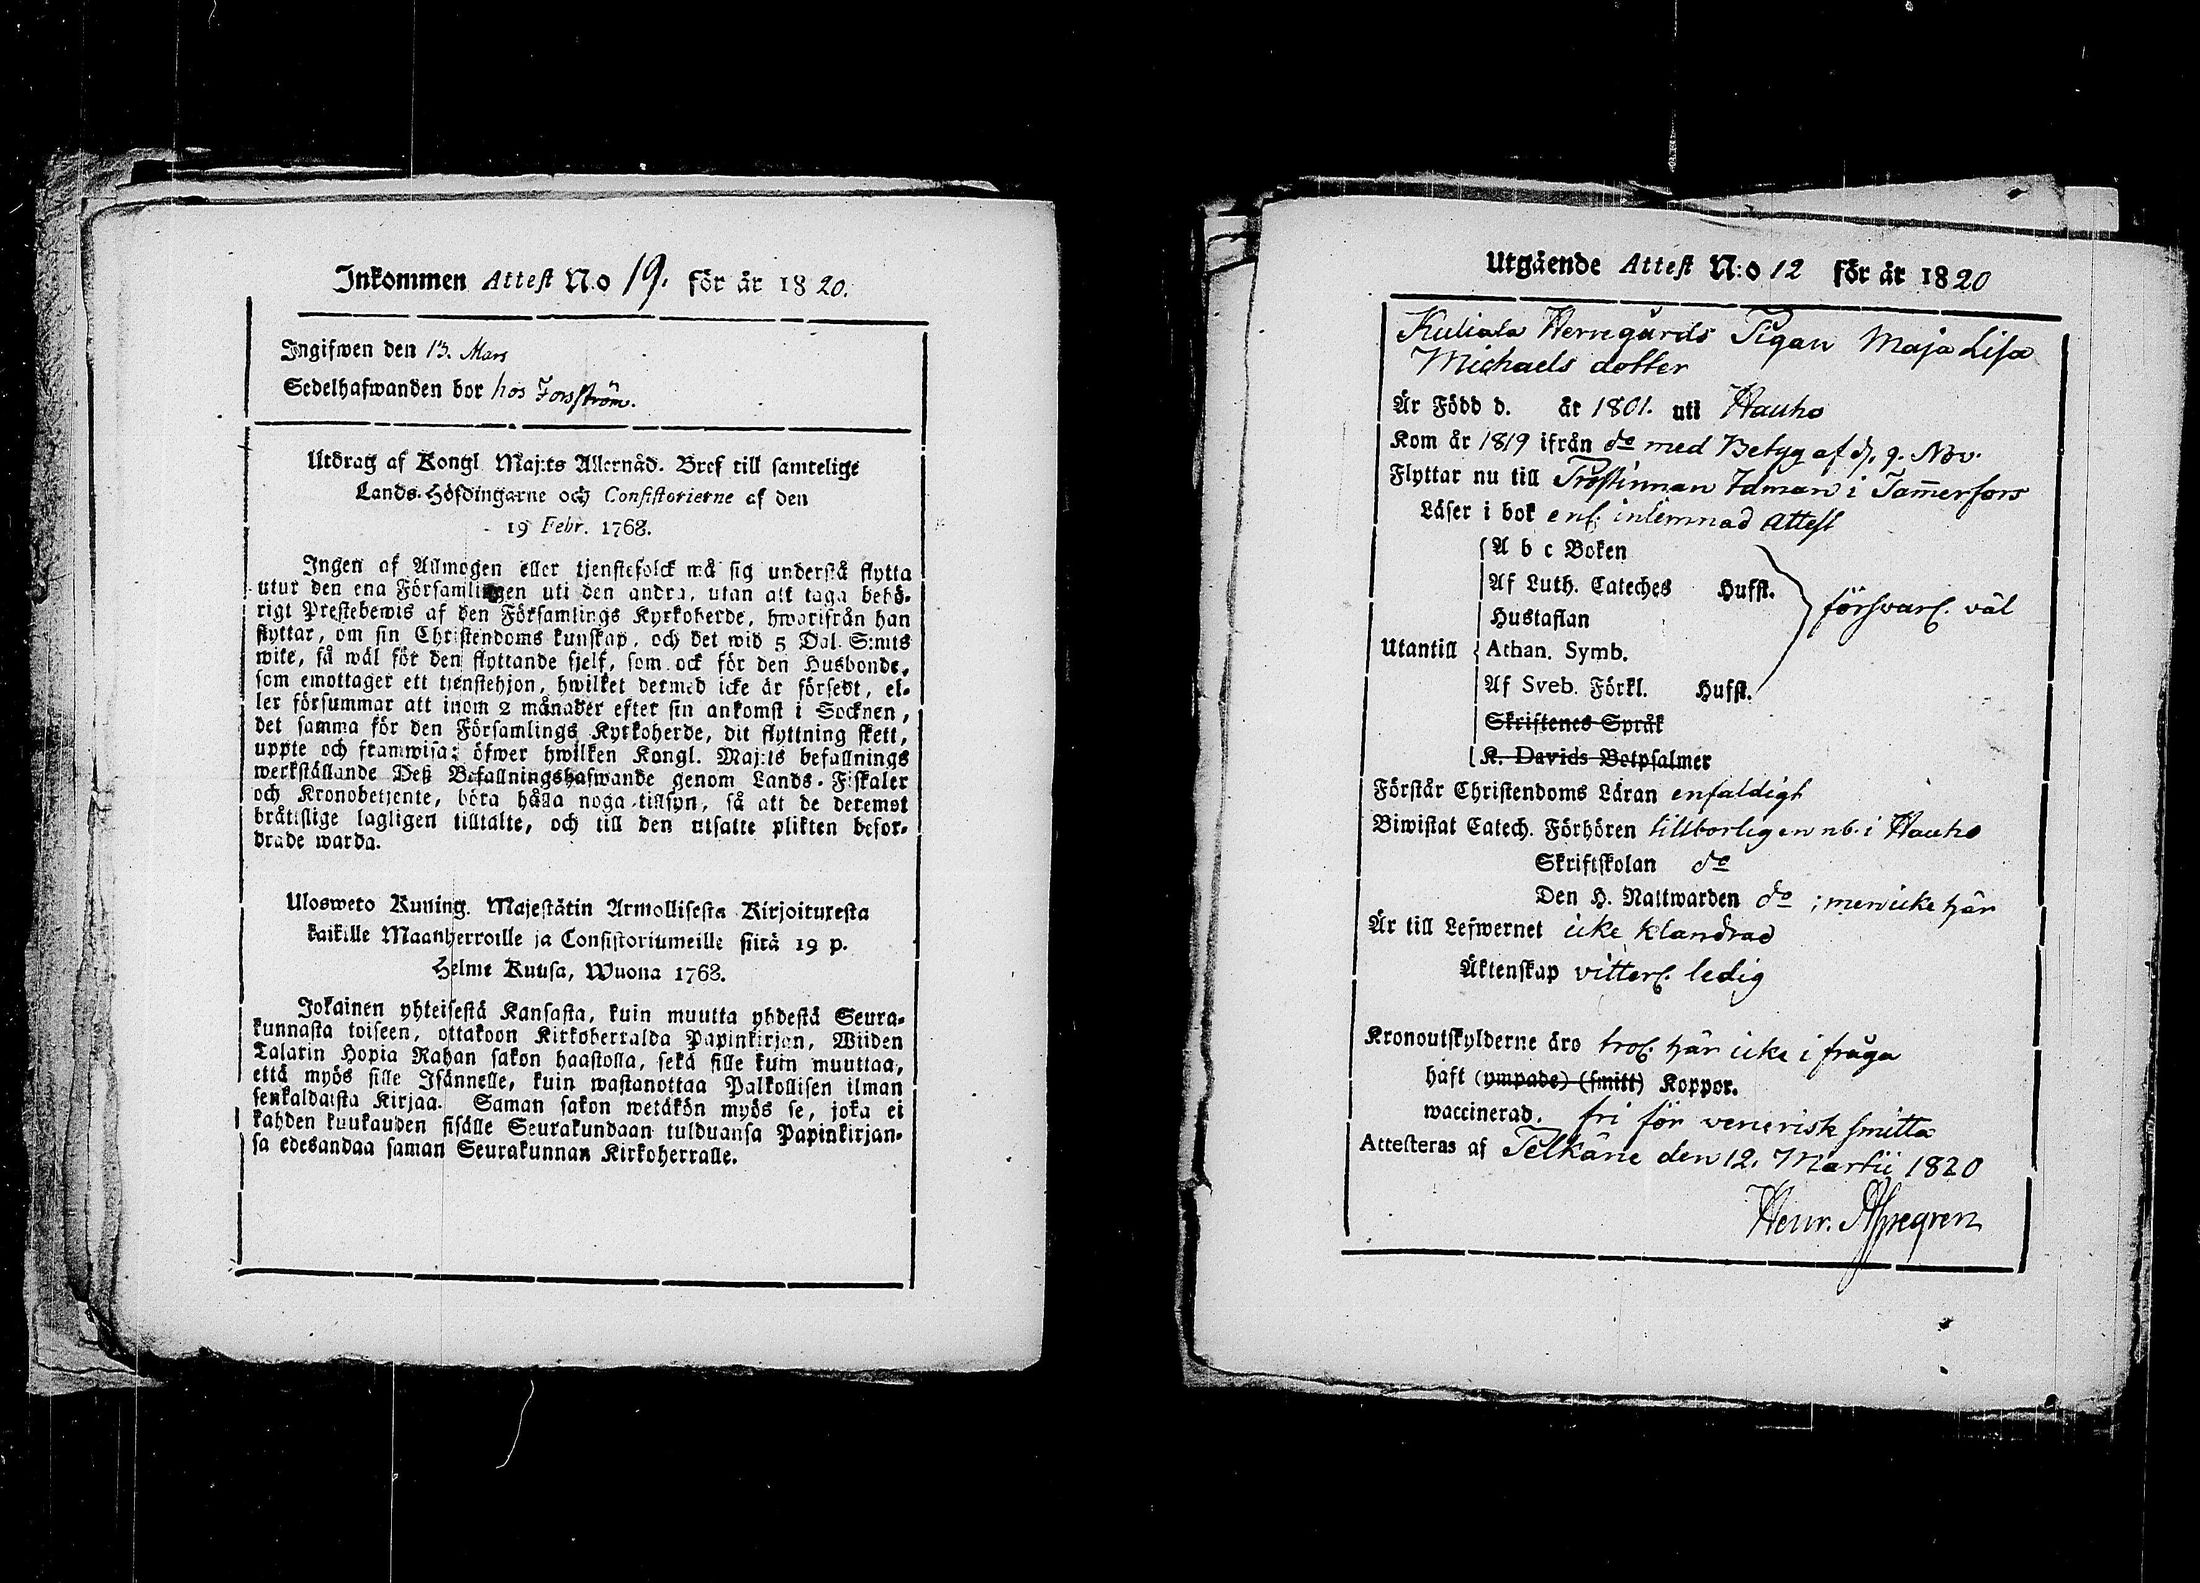 Inkommen Attest N:o 19. för år 1820.
Ingifwen den 13. Mars
Sedelhafwanden bor hos Forsström.
Utdrag af Kongl. Maj:ts Allernåd. Bref till samtelige
Lands-Höfdingarne och Consistorierne af den
19 Febr. 1768.
Ingen af Allmogen eller tjenstefolck må sig understå flytta
utur den ena Församlingen uti den andra, utan att taga behö-
rigt Prestebewis af den Församlings Kyrkoherde, hworifrån han
flyttar, om sin Christendoms kunskap, och det wid 5 Dal. S:mts
wite, så wäl för den flyttande sjelf, som ock för den Husbonde,
som emottager ett tjenstehjon, hwilket dermed icke är försedt, el-
ler försummar att inom 2 månader efter sin ankomst i Socknen,
det samma för den Församlings Kyrkoherde, dit flyttning skett,
uppte och framwisa; öfwer hwilken Kongl. Maj:ts befallnings
werkställande Deß Befallningshafwande genom Lands-Fiskaler
och Kronobetjente, böra hålla noga tillsyn, så att de deremot
brätslige lagligen tilltalte, och till den utsatte plikten befor-
drade warda.
Ulosweto Kuning. Majestätin Armollisesta Kirjoituxesta
kaikille Maanherroille ja Consistoriumeille siitä 19 p.
Helme Kuusa, Wuonna 1768.
Jokainen yhteisestä Kansasta, kuin muutta yhdestä Seura-
kunnasta toiseen, ottakoon Kirkoherralda Papinkirjan, Wiiden
Talarin Hopia Rahan sakon haastolla, sekä sille kuin muuttaa,
että myös sille Isännelle, kuin wastanottaa Palkollisen ilman
senkaldaista Kirjaa. Saman sakon wetäkön myös se, joka ei
kahden kuukauden sisälle Seurakundaan tulduansa Papinkirjan-
sa edesandaa saman Seurakunnan Kirkoherralle.
Utgående Attest N:o 12 för år 1820
Kuliala Herregårds Pigan Maja Lisa
Michaels dotter
Är Född d. år 1801. uti Hauho
Kom år 1819 ifrån do med Betyg af d. 9. Nov.
Flyttar nu till Prostinnan Idman i Tam̄erfors
Läser i bok enl. inlemnad Attest
A b c Boken
Af Luth. Cateches Hufst.
Hustaflan försvarl. väl
Utantill Athan. Symb.
Af Sveb. Förkl. Hufst.
Skriftenes Språk
K. Davids Botpsalmer
Förstår Christendoms Läran enfaldigt
Biwistat Catech. Förhören tillborligen nb. i Hauho
Skriftskolan do
Den H. Nattwarden do ; men icke här
Är till Lefwernet icke klandrad
Äktenskap vitterl. ledig
Kronoutskylderne äro trol. här icke i fråga
haft (ympade) (smitt) Koppor.
waccinerad. fri för venerisk smitta
Attesteras af Pelkäne den 12. Martii 1820
Henr.